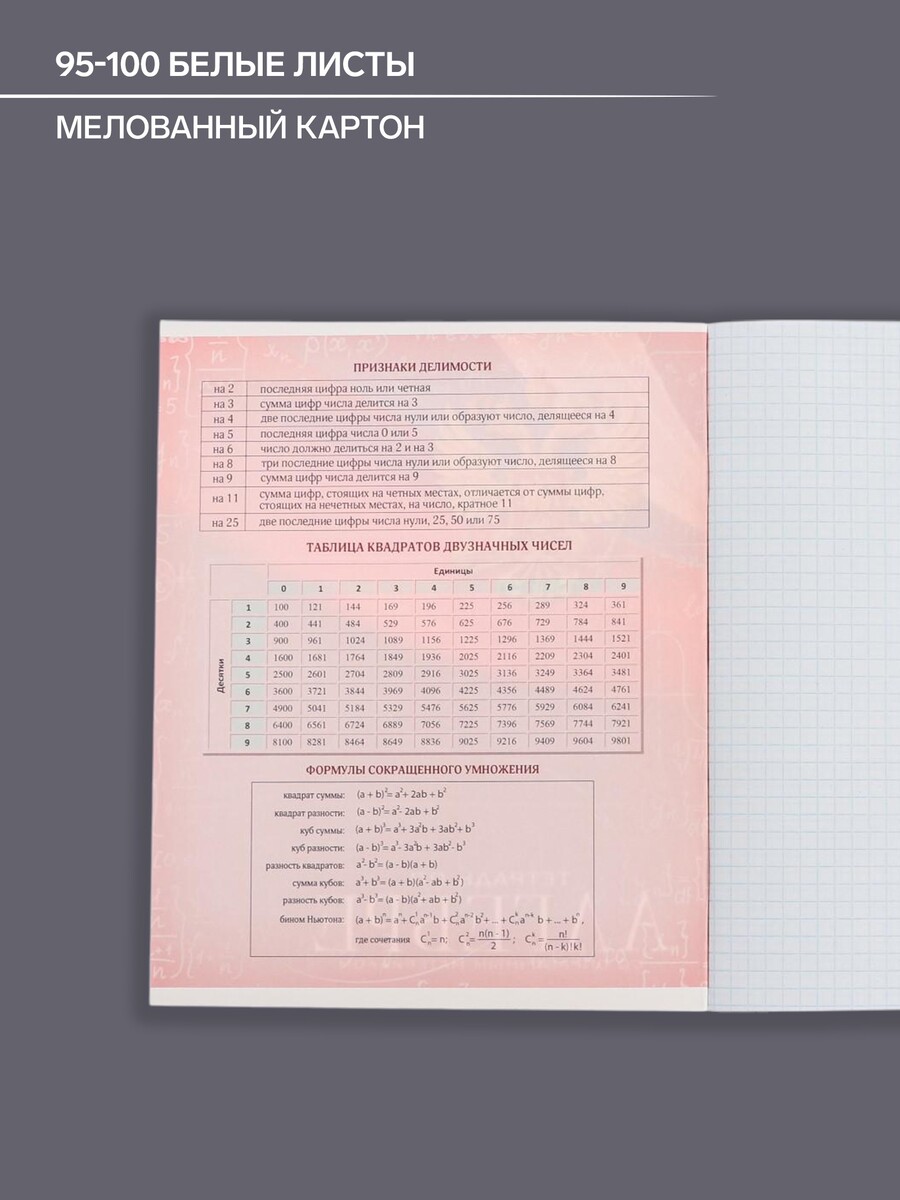 95-100 БЕЛЫЕ ЛИСТЫ
МЕЛОВАННЫЙ КАРТОН
ПРИЗНАКИ ДЕЛИМОСТИ
на 2 последняя цифра ноль или четная
на 3 сумма цифр числа делится на 3
на 4 две последние цифры числа нули или образуют число, делящееся на 4
на 5 последняя цифра числа 0 или 5
на 6 число должно делиться на 2 и на 3
на 8 три последние цифры числа нули или образуют число, делящееся на 8
на 9 сумма цифр числа делится на 9
на 11 сумма цифр, стоящих на четных местах, отличается от суммы цифр,
стоящих на нечетных местах, на число, кратное 11
на 25 две последние цифры числа нули, 25, 50 или 75
ТАБЛИЦА КВАДРАТОВ ДВУЗНАЧНЫХ ЧИСЕЛ
Единицы
0 1 2 3 4 5 6 7 8 9
Десятки
1 100 121 144 169 196 225 256 289 324 361
2 400 441 484 529 576 625 676 729 784 841
3 900 961 1024 1089 1156 1225 1296 1369 1444 1521
4 1600 1681 1764 1849 1936 2025 2116 2209 2304 2401
5 2500 2601 2704 2809 2916 3025 3136 3249 3364 3481
6 3600 3721 3844 3969 4096 4225 4356 4489 4624 4761
7 4900 5041 5184 5329 5476 5625 5776 5929 6084 6241
8 6400 6561 6724 6889 7056 7225 7396 7569 7744 7921
9 8100 8281 8464 8649 8836 9025 9216 9409 9604 9801
ФОРМУЛЫ СОКРАЩЕННОГО УМНОЖЕНИЯ
квадрат суммы: (a + b)²= a²+ 2ab + b²
квадрат разности: (a - b)²= a²- 2ab + b²
куб суммы: (a + b)³= a³+ 3a²b + 3ab²+ b³
куб разности: (a - b)³= a³- 3a²b + 3ab²- b³
разность квадратов: a²- b²= (a - b)(a + b)
сумма кубов: a³+ b³= (a + b)(a²- ab + b²)
разность кубов: a³- b³= (a - b)(a²+ ab + b²)
бином Ньютона: (a + b)ⁿ= aⁿ+ Cₙ¹aⁿ⁻¹b + Cₙ²aⁿ⁻²b²+ ... + Cₙᵏaⁿ⁻ᵏ b + ... + bⁿ ,
где сочетания Cₙ¹= n; Cₙ²= n(n - 1)/2 ; Cₙᵏ= n!/(n - k)!k!